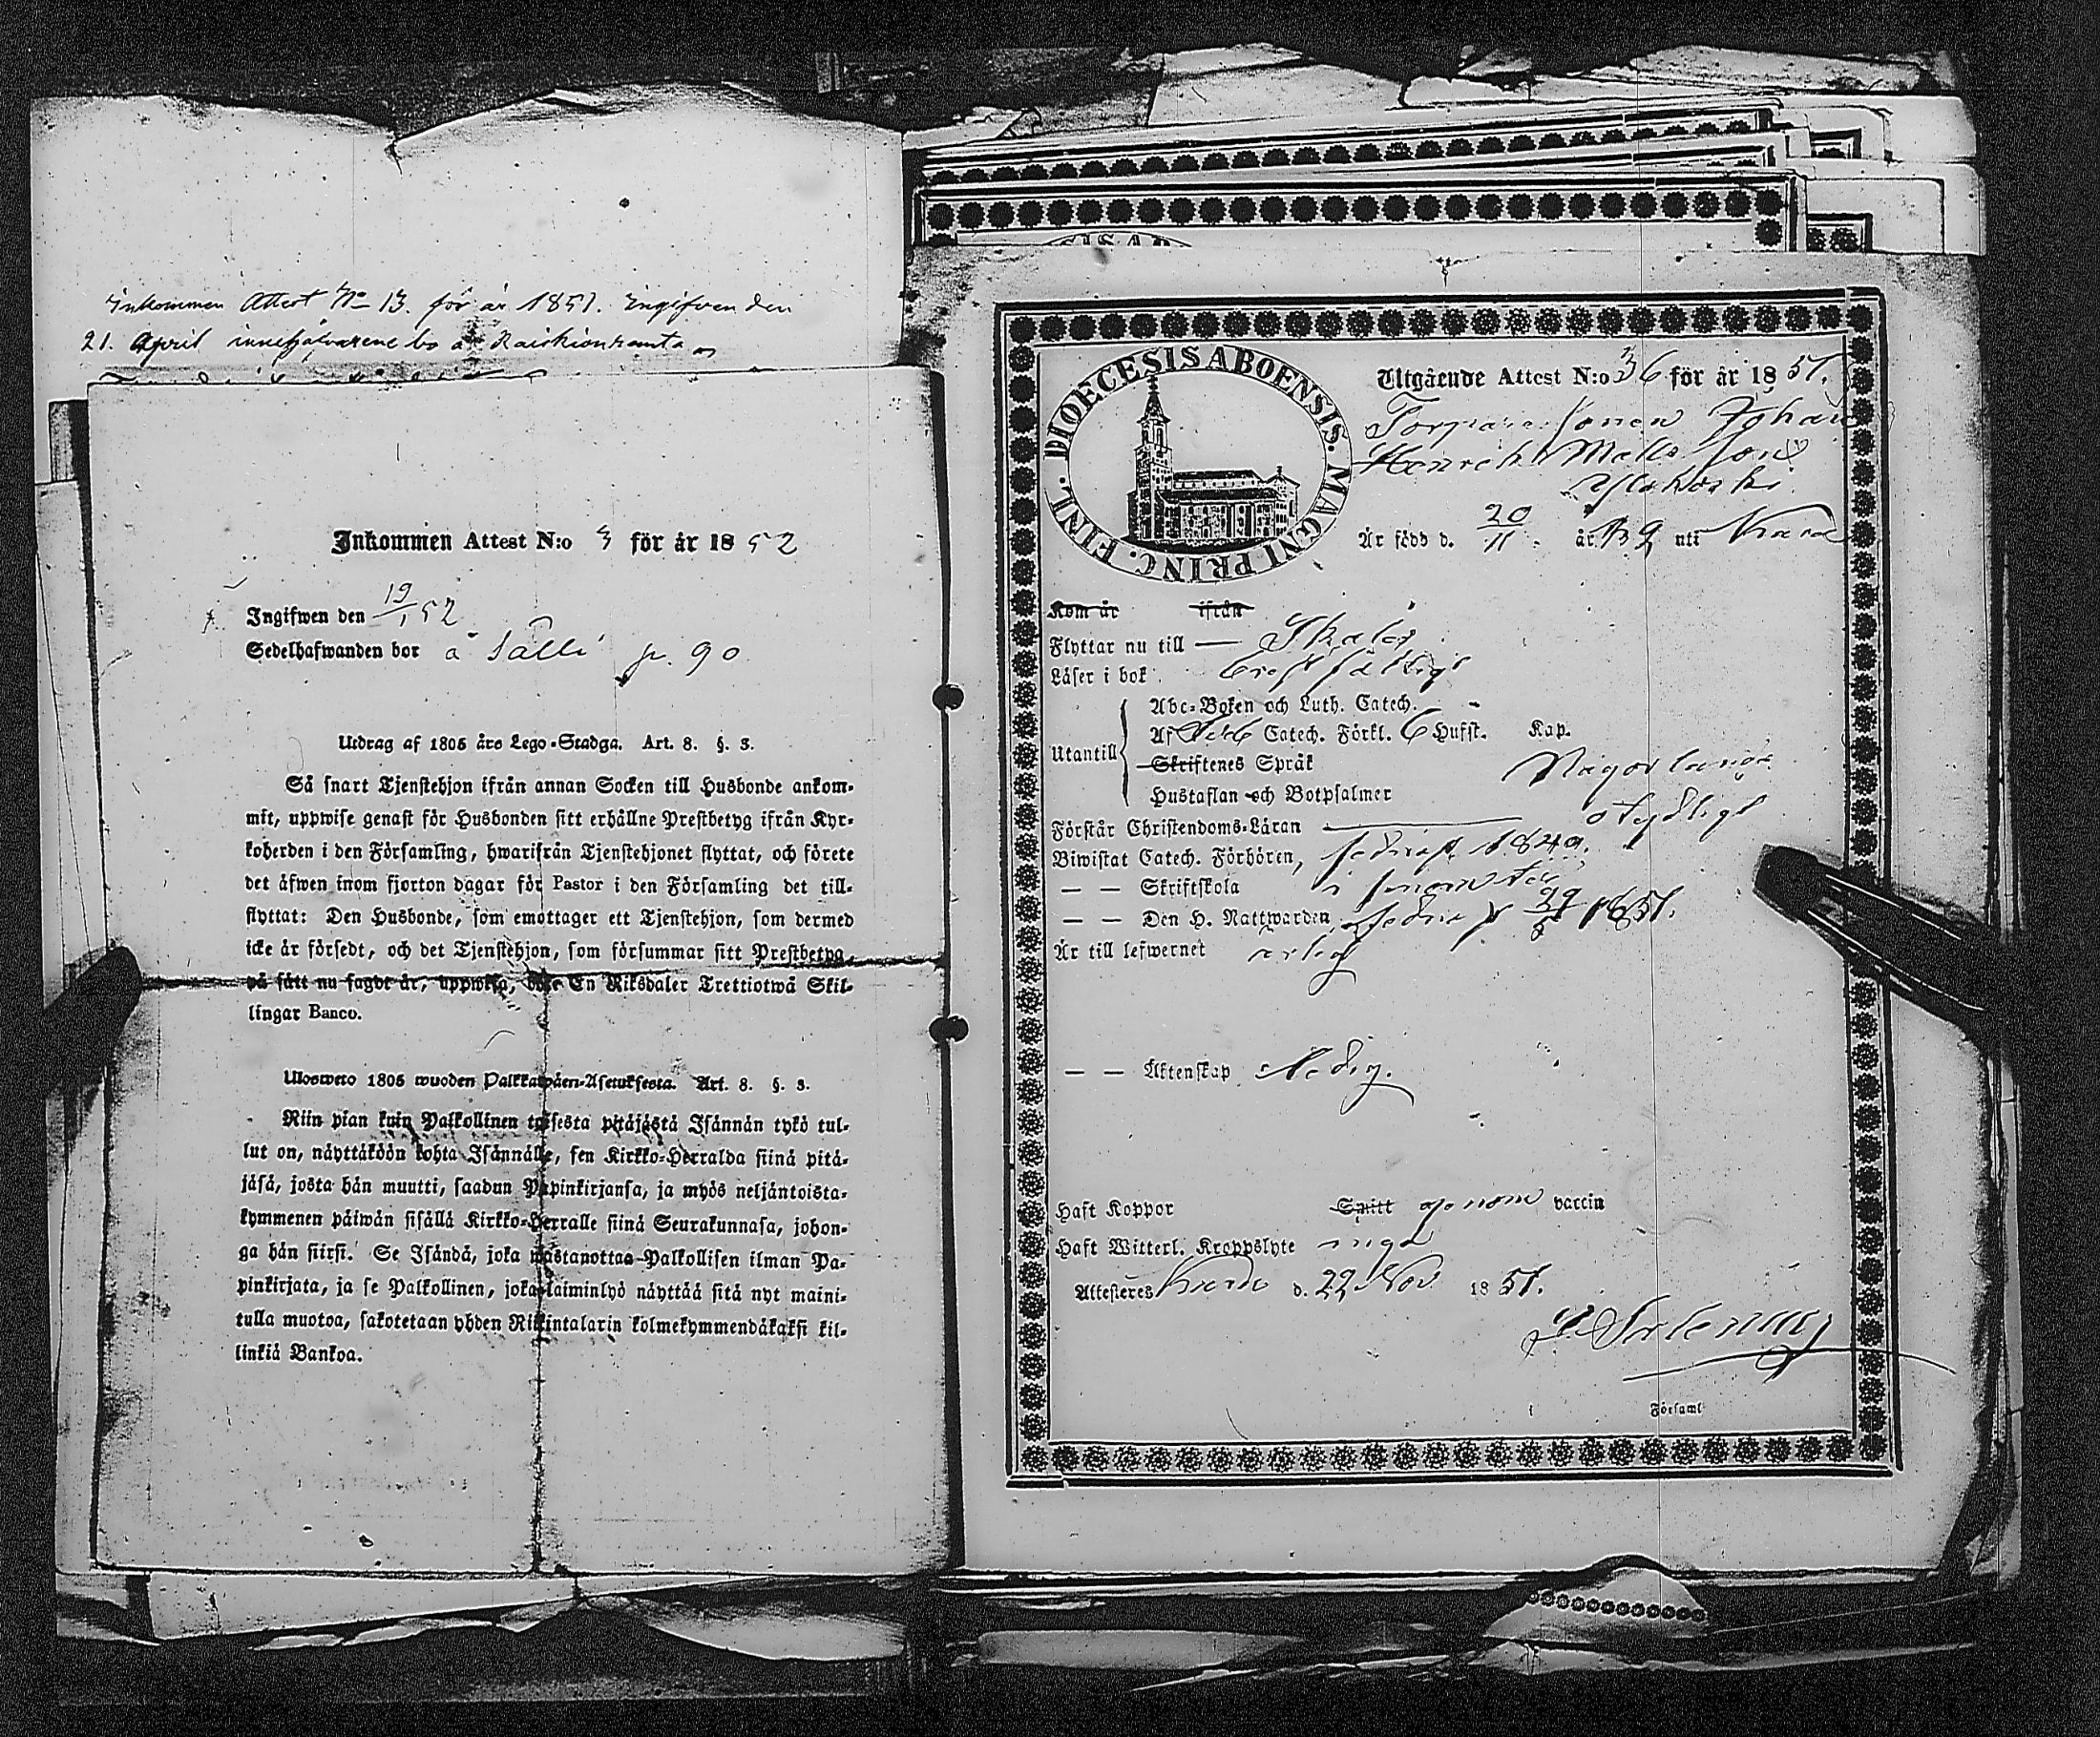 Inkommen Attest No 13. för år 1851. Ingifven den
21. April innehafvarene bo å Raiskionranta
Inkommen Attest N:o 3 för år 1852
Ingifwen den 19/1 52
Sedelhafwanden bor å Sälli p. 90
Utdrag af 1805 års Lego-Stadga. Art. 8. §. 3.
Så snart Tjenstehjon ifrån annan Socken till Husbonde ankom-
mit, uppwise genast för Husbonden sitt erhållne Prestbetyg ifrån Kyr-
koherden i den Församling, hwarifrån Tjenstehjonet flyttat, och förete
det äfwen inom fjorton dagar för Pastor i den Församling det till-
flyttat: Den Husbonde, som emottager ett Tjenstehjon, som dermed
icke är försedt, och det Tjenstehjon, som försummar sitt Prestbetyg,
på sätt nu sagdt är, uppwisa, böte En Riksdaler Trettiotwå Skil-
lingar Banco.
Ulosweto 1805 wuoden Palkkawäen-Asetuksesta. Art. 8. §. 3.
Niin pian kuin Palkollinen toisesta pitäjästä Isännän tykö tul-
lut on, näyttäköön kohta Isännälle, sen Kirkko-Herralda siinä pitä-
jäsä, josta hän muutti, saadun Papinkirjansa, ja myös neljäntoista-
kymmenen päiwän sisällä Kirkko-Herralle siinä Seurakunnasa, johon-
ga hän siirsi. Se Isändä, joka wastanottaa Palkollisen ilman Pa-
pinkirjata, ja se Palkollinen, joka laiminlyö näyttää sitä nyt maini-
tulla muotoa, sakotetaan yhden Riikintalarin kolmekymmendäkaksi kil-
linkiä Bankoa.
DIOECESIS ABOENSIS. MAGNI PRINC. FINL.
Utgående Attest N:o 36 för år 1851.
Torpare sonen Johan
Henrik Matts son
Ylikoski
Är född d. 20/11 år 32 uti
Kom år ifrån
Flyttar nu till —
Läser i bok
Utantill
Abc-Boken och Luth. Catech.
Af Catech. Förkl. 6 Hufst. Kap.
Skriftenes Språk
Hustaflan och Botpsalmer Någorlunda
Förstår Christendoms-Läran otydligt
Biwistat Catech. Förhören, sednast 1849.
— — Skriftskola
— — Den H. Nattwarden sednast 1851.
Är till lefwernet ärlig
— — Äktenskap ledig.
Haft Koppor Smitt genom vaccin
Haft Witterl. Kroppslyte inga
Attesteres d. 22 Nov 1851.
Församl